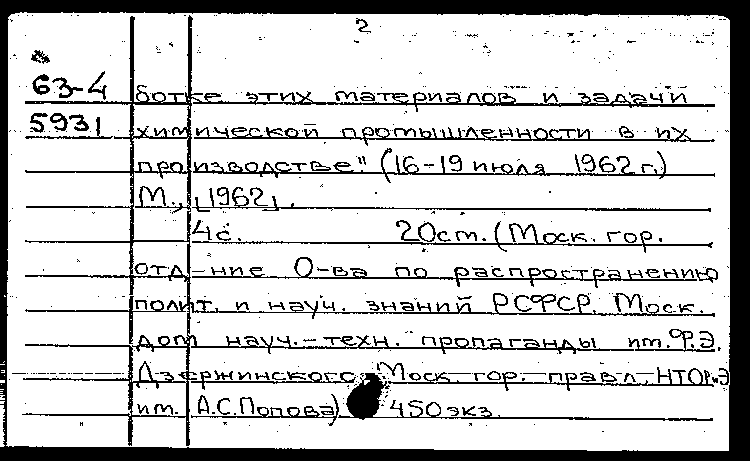 2
63-4 ботке этих материалов и задачи
5931 химической промышленности в их
производстве." (16-19 июля 1962 г.)
М., [1962].
4с. 20см. (Моск. гор.
отд-ние О-ва по распространению
полит. и науч. знаний РСФСР. Моск.
дом науч.-техн. пропаганды им. Ф.Э.
Дзержинского. Моск. гор. правл. НТОРиЭ
им. А.С.Попова) 450 экз.